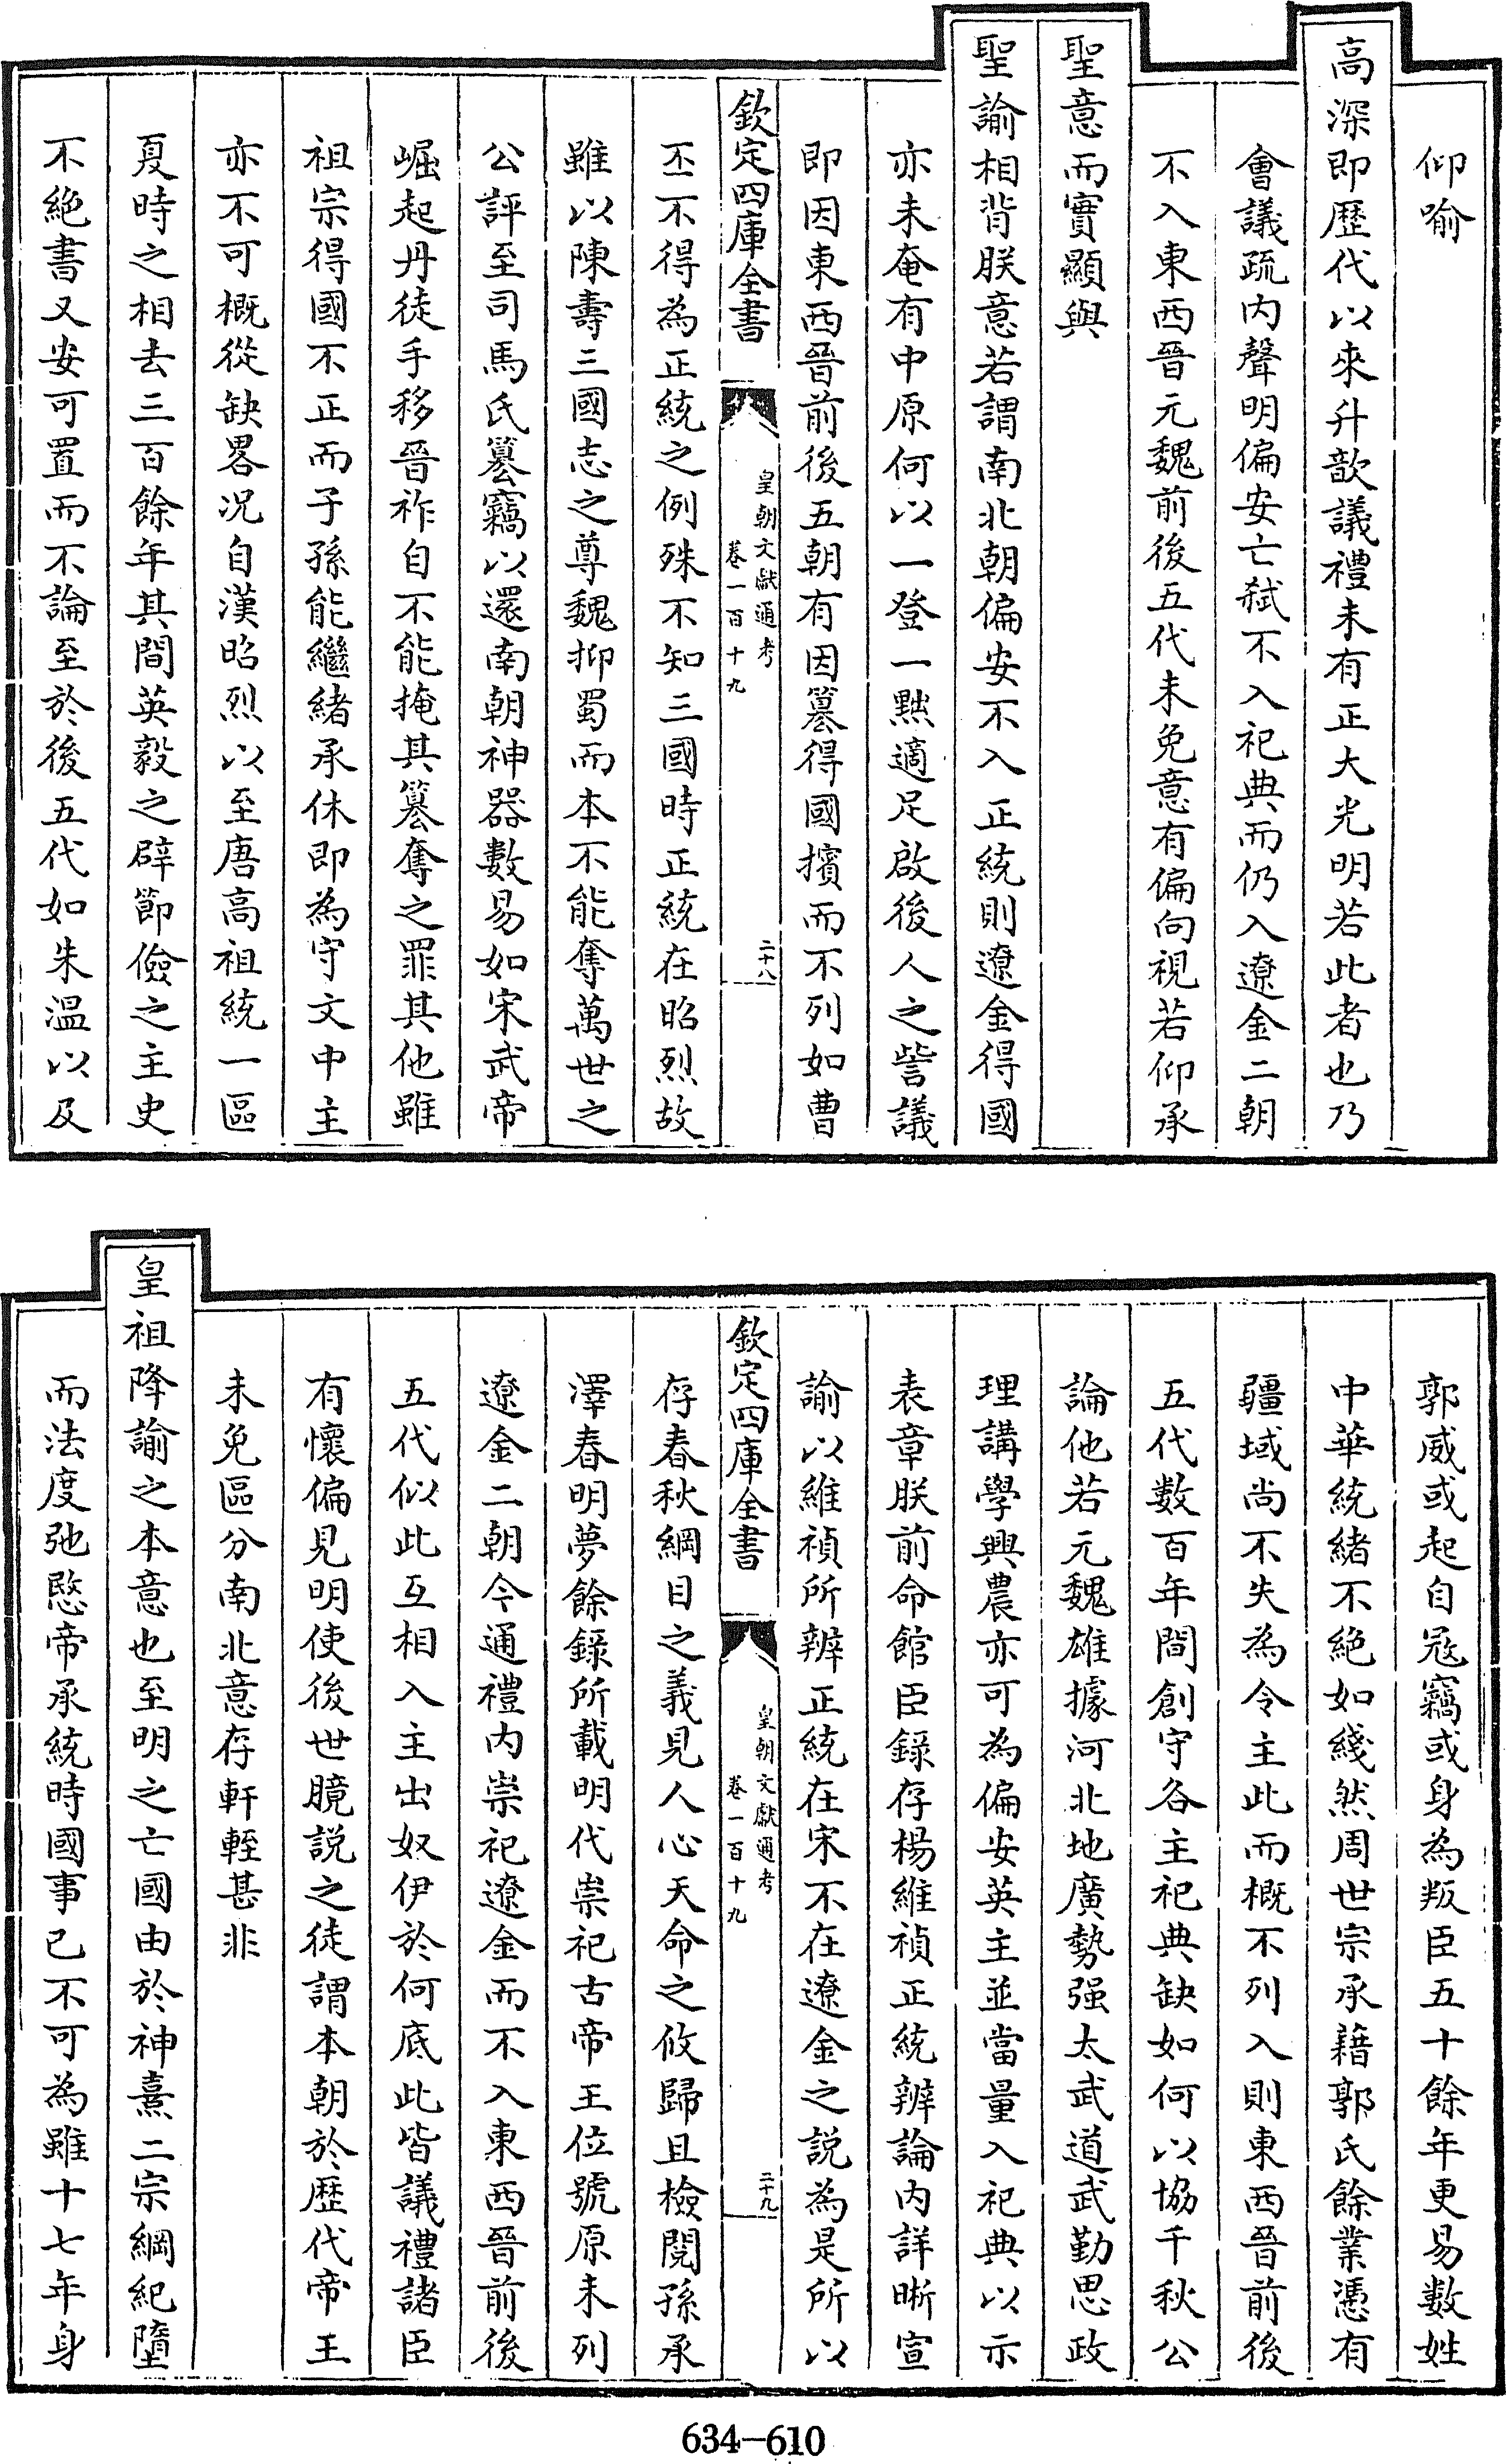 仰喻
高深即歴代以來升歆議禮未有正大光明若此者也乃
會議疏内聲明偏安亡弑不入祀典而仍入遼金二朝
不入東西晉元魏前後五代未免意有偏向視若仰承
聖意而實顯與
聖諭相背朕意若謂南北朝偏安不入正統則遼金得國
亦未奄有中原何以一登一黜適足啟後人之訾議
即因東西晉前後五朝有因簒得國擯而不列如曹
欽定四庫全書
皇朝文獻通考
卷一百十九
二十八
丕不得為正統之例殊不知三國時正統在昭烈故
雖以陳壽三國志之尊魏抑蜀而本不能奪萬世之
公評至司馬氏簒竊以還南朝神器數易如宋武帝
崛起丹徒手移晉祚自不能掩其簒奪之罪其他雖
祖宗得國不正而子孫能繼緒承休即為守文中主
亦不可概從缺畧況自漢昭烈以至唐高祖統一區
夏時之相去三百餘年其間英毅之辟節儉之主史
不絶書又安可置而不論至於後五代如朱温以及
郭威或起自冦竊或身為叛臣五十餘年更易數姓
中華統緒不絶如綫然周世宗承藉郭氏餘業憑有
疆域尚不失為令主此而概不列入則東西晉前後
五代數百年間創守各主祀典缺如何以協千秋公
論他若元魏雄據河北地廣勢强太武道武勤思政
理講學興農亦可為偏安英主並當量入祀典以示
表章朕前命館臣錄存楊維禎正統辨論内詳晰宣
諭以維禎所辨正統在宋不在遼金之説為是所以
欽定四庫全書
皇朝文獻通考
卷一百十九
二十九
存春秋綱目之義見人心天命之攸歸且檢閲孫承
澤春明夢餘錄所載明代崇祀古帝王位號原未列
遼金二朝今通禮内崇祀遼金而不入東西晉前後
五代似此互相入主出奴伊於何底此皆議禮諸臣
有懷偏見明使後世臆説之徒謂本朝於歴代帝王
未免區分南北意存軒輊甚非
皇祖降諭之本意也至明之亡國由於神熹二宗綱紀墮
而法度弛愍帝承統時國事已不可為雖十七年身
634-610